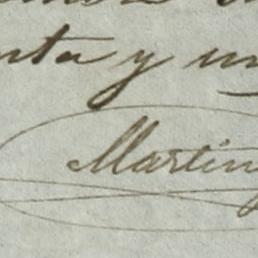 nta y un
Martin